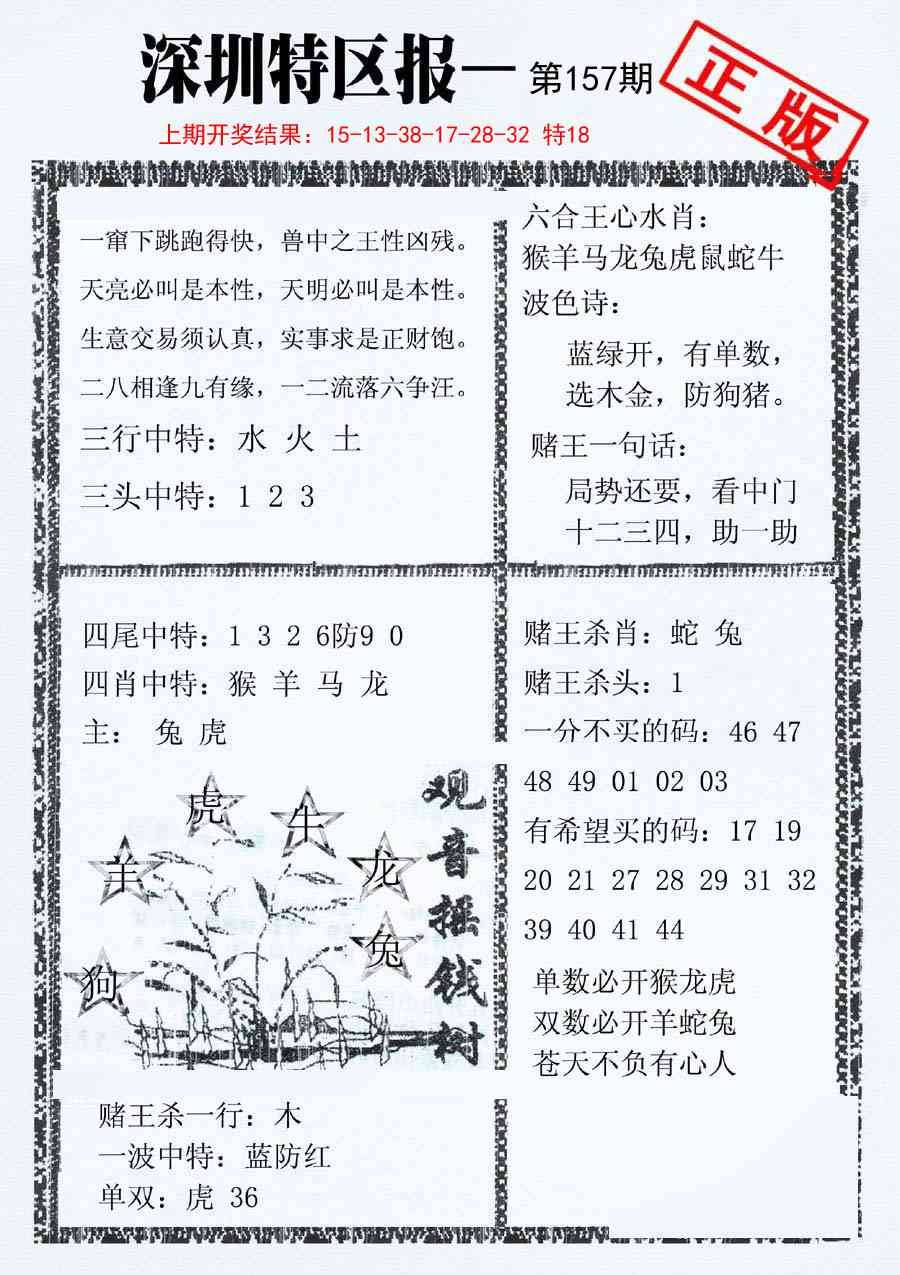 深圳特区报一 第157期
正版
上期开奖结果：15-13-38-17-28-32 特18
一窜下跳跑得快，兽中之王性凶残。
天亮必叫是本性，天明必叫是本性。
生意交易须认真，实事求是正财饱。
二八相逢九有缘，一二流落六争汪。
三行中特：水 火 土
三头中特：1 2 3
六合王心水肖：
猴羊马龙兔虎鼠蛇牛
波色诗：
蓝绿开，有单数，
选木金，防狗猪。
赌王一句话：
局势还要，看中门
十二三四，助一助
四尾中特：1 3 2 6防9 0
四肖中特：猴 羊 马 龙
主： 兔 虎
虎
牛
羊
龙
兔
狗
观音摇钱树
赌王杀肖：蛇 兔
赌王杀头：1
一分不买的码：46 47
48 49 01 02 03
有希望买的码：17 19
20 21 27 28 29 31 32
39 40 41 44
单数必开猴龙虎
双数必开羊蛇兔
苍天不负有心人
赌王杀一行：木
一波中特：蓝防红
单双：虎 36